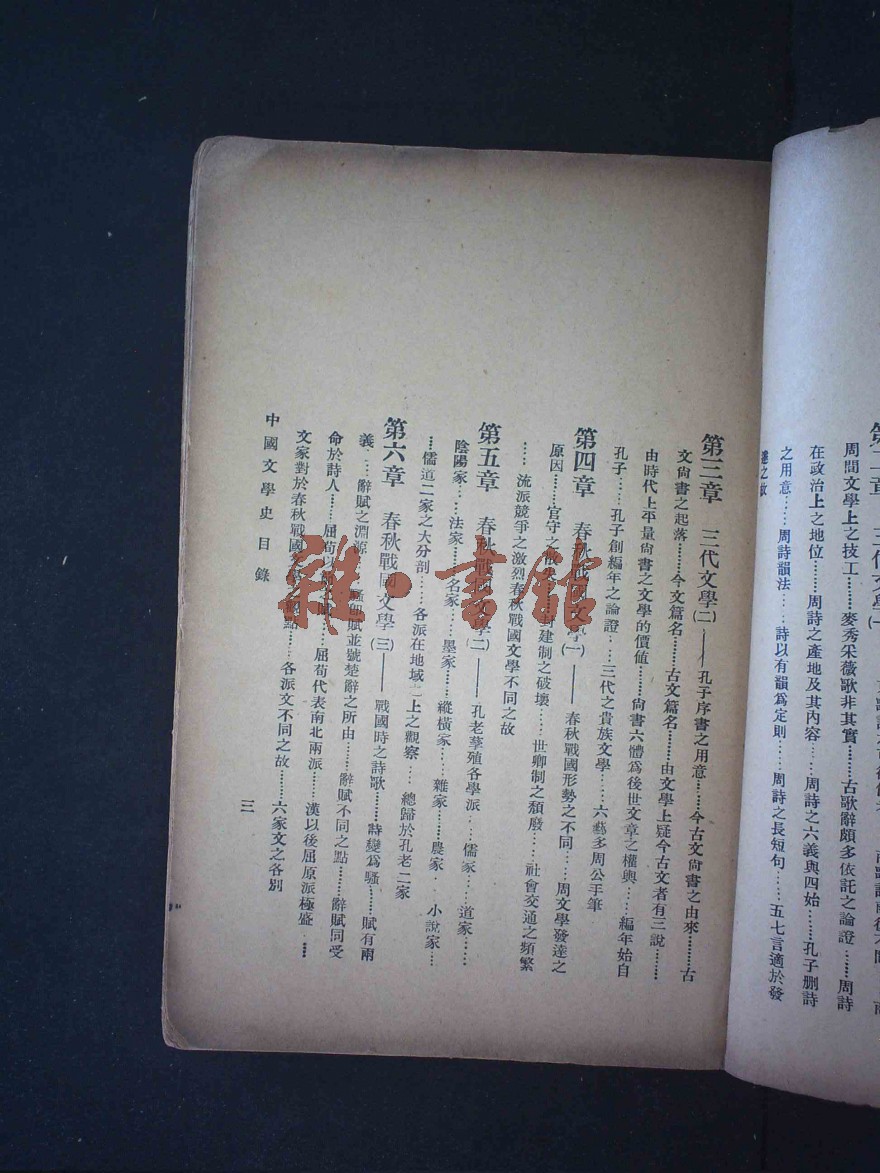 周間文學上之技工……麥秀采薇歌非其實……古歌辭頗多依託之論證……周詩
在政治上之地位……周詩之產地及其內容……周詩之六義與四始……孔子刪詩
之用意……周詩韻法……詩以有韻爲定則……周詩之長短句……五七言適於發
達之故
第三章 三代文學(二)——孔子序書之用意……今古文尙書之由來……古
文尙書之起落……今文篇名……古文篇名……由文學上疑今古文者有三說……
由時代上平量尙書之文學的價値……尙書六體爲後世文章之權輿……編年始自
孔子……孔子創編年之論證……三代之貴族文學……六藝多周公手筆
第四章 春秋戰國文學(一)——春秋戰國形勢之不同……周文學發達之
原因……官守之散失……封建制之破壞……世卿制之頹廢……社會交通之頻繁
……流派競爭之激烈春秋戰國文學不同之故
第五章 春秋戰國文學(二)——孔老孳殖各學派……儒家……道家……
陰陽家……法家……名家……墨家……縱橫家……雜家……農家……小說家……
……儒道二家之大分剖……各派在地域上之觀察……總歸於孔老二家
第六章 春秋戰國文學(三)——戰國時之詩歌……詩變爲騷……賦有兩
義……辭賦之淵源……騷卽賦並號楚辭之所由……辭賦不同之點……辭賦同受
命於詩人……屈荀以 賦……屈荀代表南北兩派……漢以後屈原派極盛……
文家對於春秋戰國文學之觀點……各派文不同之故……六家文之各別
中國文學史目錄
三
雜·書館